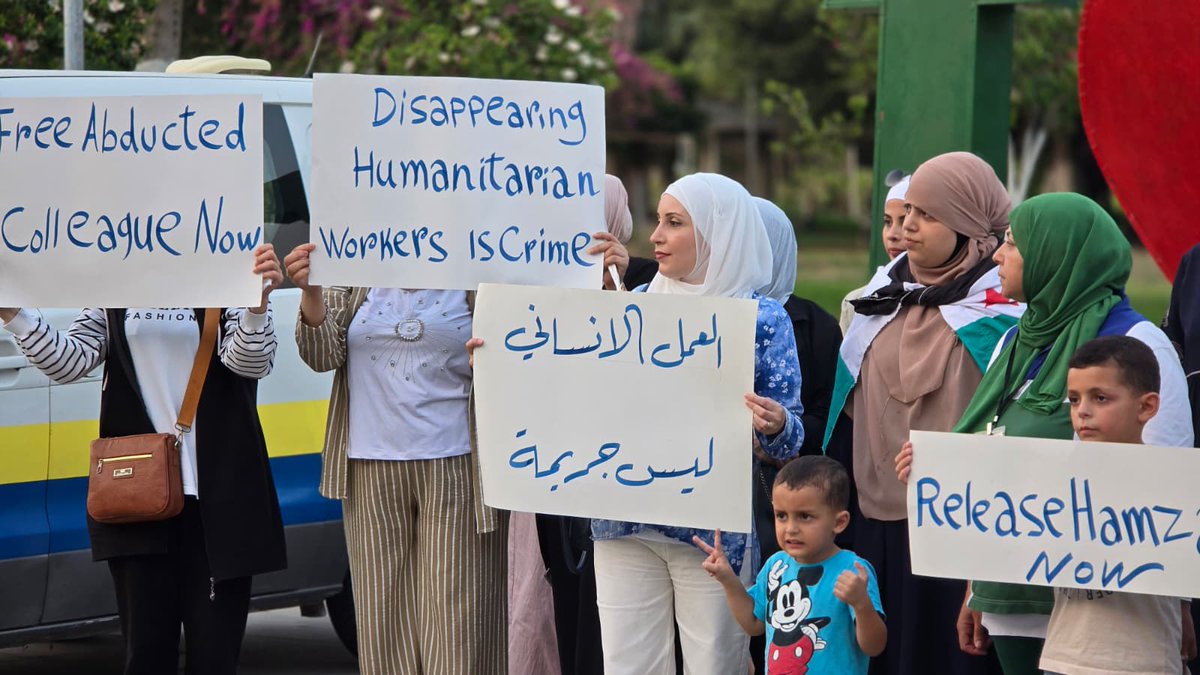 Free Abducted
Colleague Now
Disappearing
Humanitarian
Workers Is Crime
العمل الانساني
ليس جريمة
Release Hamza
Now
FASHION